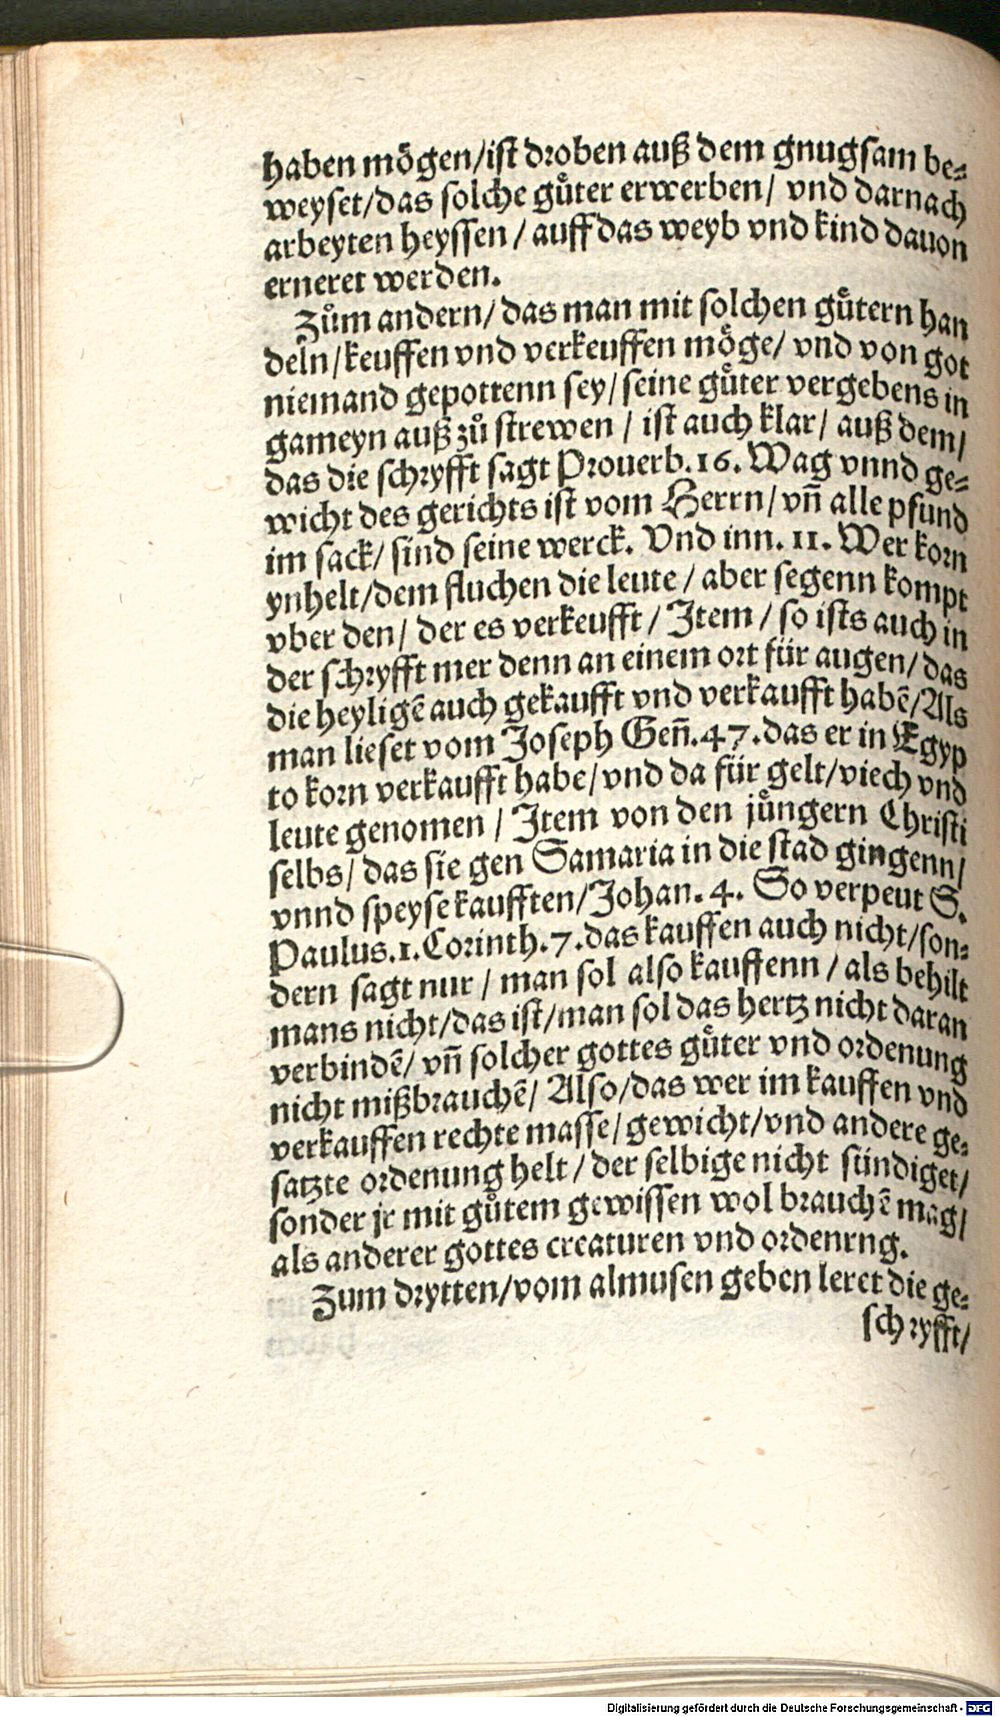 haben mögen/ist droben auß dem gnugsam be⸗
weyset/das solche guͤter erwerben/ vnd darnach
arbeyten heyssen / auff das weyb vnd kind dauon
erneret werden.
Zuͦm andern/ das man mit solchen guͤtern han
deln/keuffen vnd verkeuffen moͤge/ vnd von got
niemand gepottenn sey/ seine guͤter vergebens in
gameyn auß zuͦ strewen / ist auch klar/ auß dem/
das die schryfft sagt Prouerb.16. Wag vnnd ge⸗
wicht des gerichts ist vom Herrn/ vñ alle pfund
im sack/ sind seine werck. Vnd inn. 11. Wer korn
ynhelt/dem fluchen die leute / aber segenn kompt
vber den/ der es verkeufft / Item / so ists auch in
der schryfft mer denn an einem ort für augen/ das
die heyligẽ auch gekaufft vnd verkaufft habẽ/Als
man lieset vom Joseph Geñ.47.das er in Egyp
to korn verkaufft habe/vnd da für gelt/viech vnd
leute genomen / Item von den juͤngern Christi
selbs/ das sie gen Samaria in die stad gingenn/
vnnd speyse kaufften/Johan. 4. So verpeut S.
Paulus.1.Corinth.7.das kauffen auch nicht/son⸗
dern sagt nur / man sol also kauffenn / als behilt
mans nicht/das ist/man sol das hertz nicht daran
verbindẽ/ vñ solcher gottes guͤter vnd ordenung
nicht mißbrauchẽ/ Also/das wer im kauffen vnd
verkauffen rechte masse/gewicht/vnd andere ge⸗
satzte ordenung helt / der selbige nicht sündiget/
sonder jr mit guͦtem gewissen wol brauchẽ mag/
als anderer gottes creaturen vnd ordenrng.
Zum drytten/vom almusen geben leret die ge⸗
schryfft/
Digitalisierung gefördert durch die Deutsche Forschungsgemeinschaft - DFG